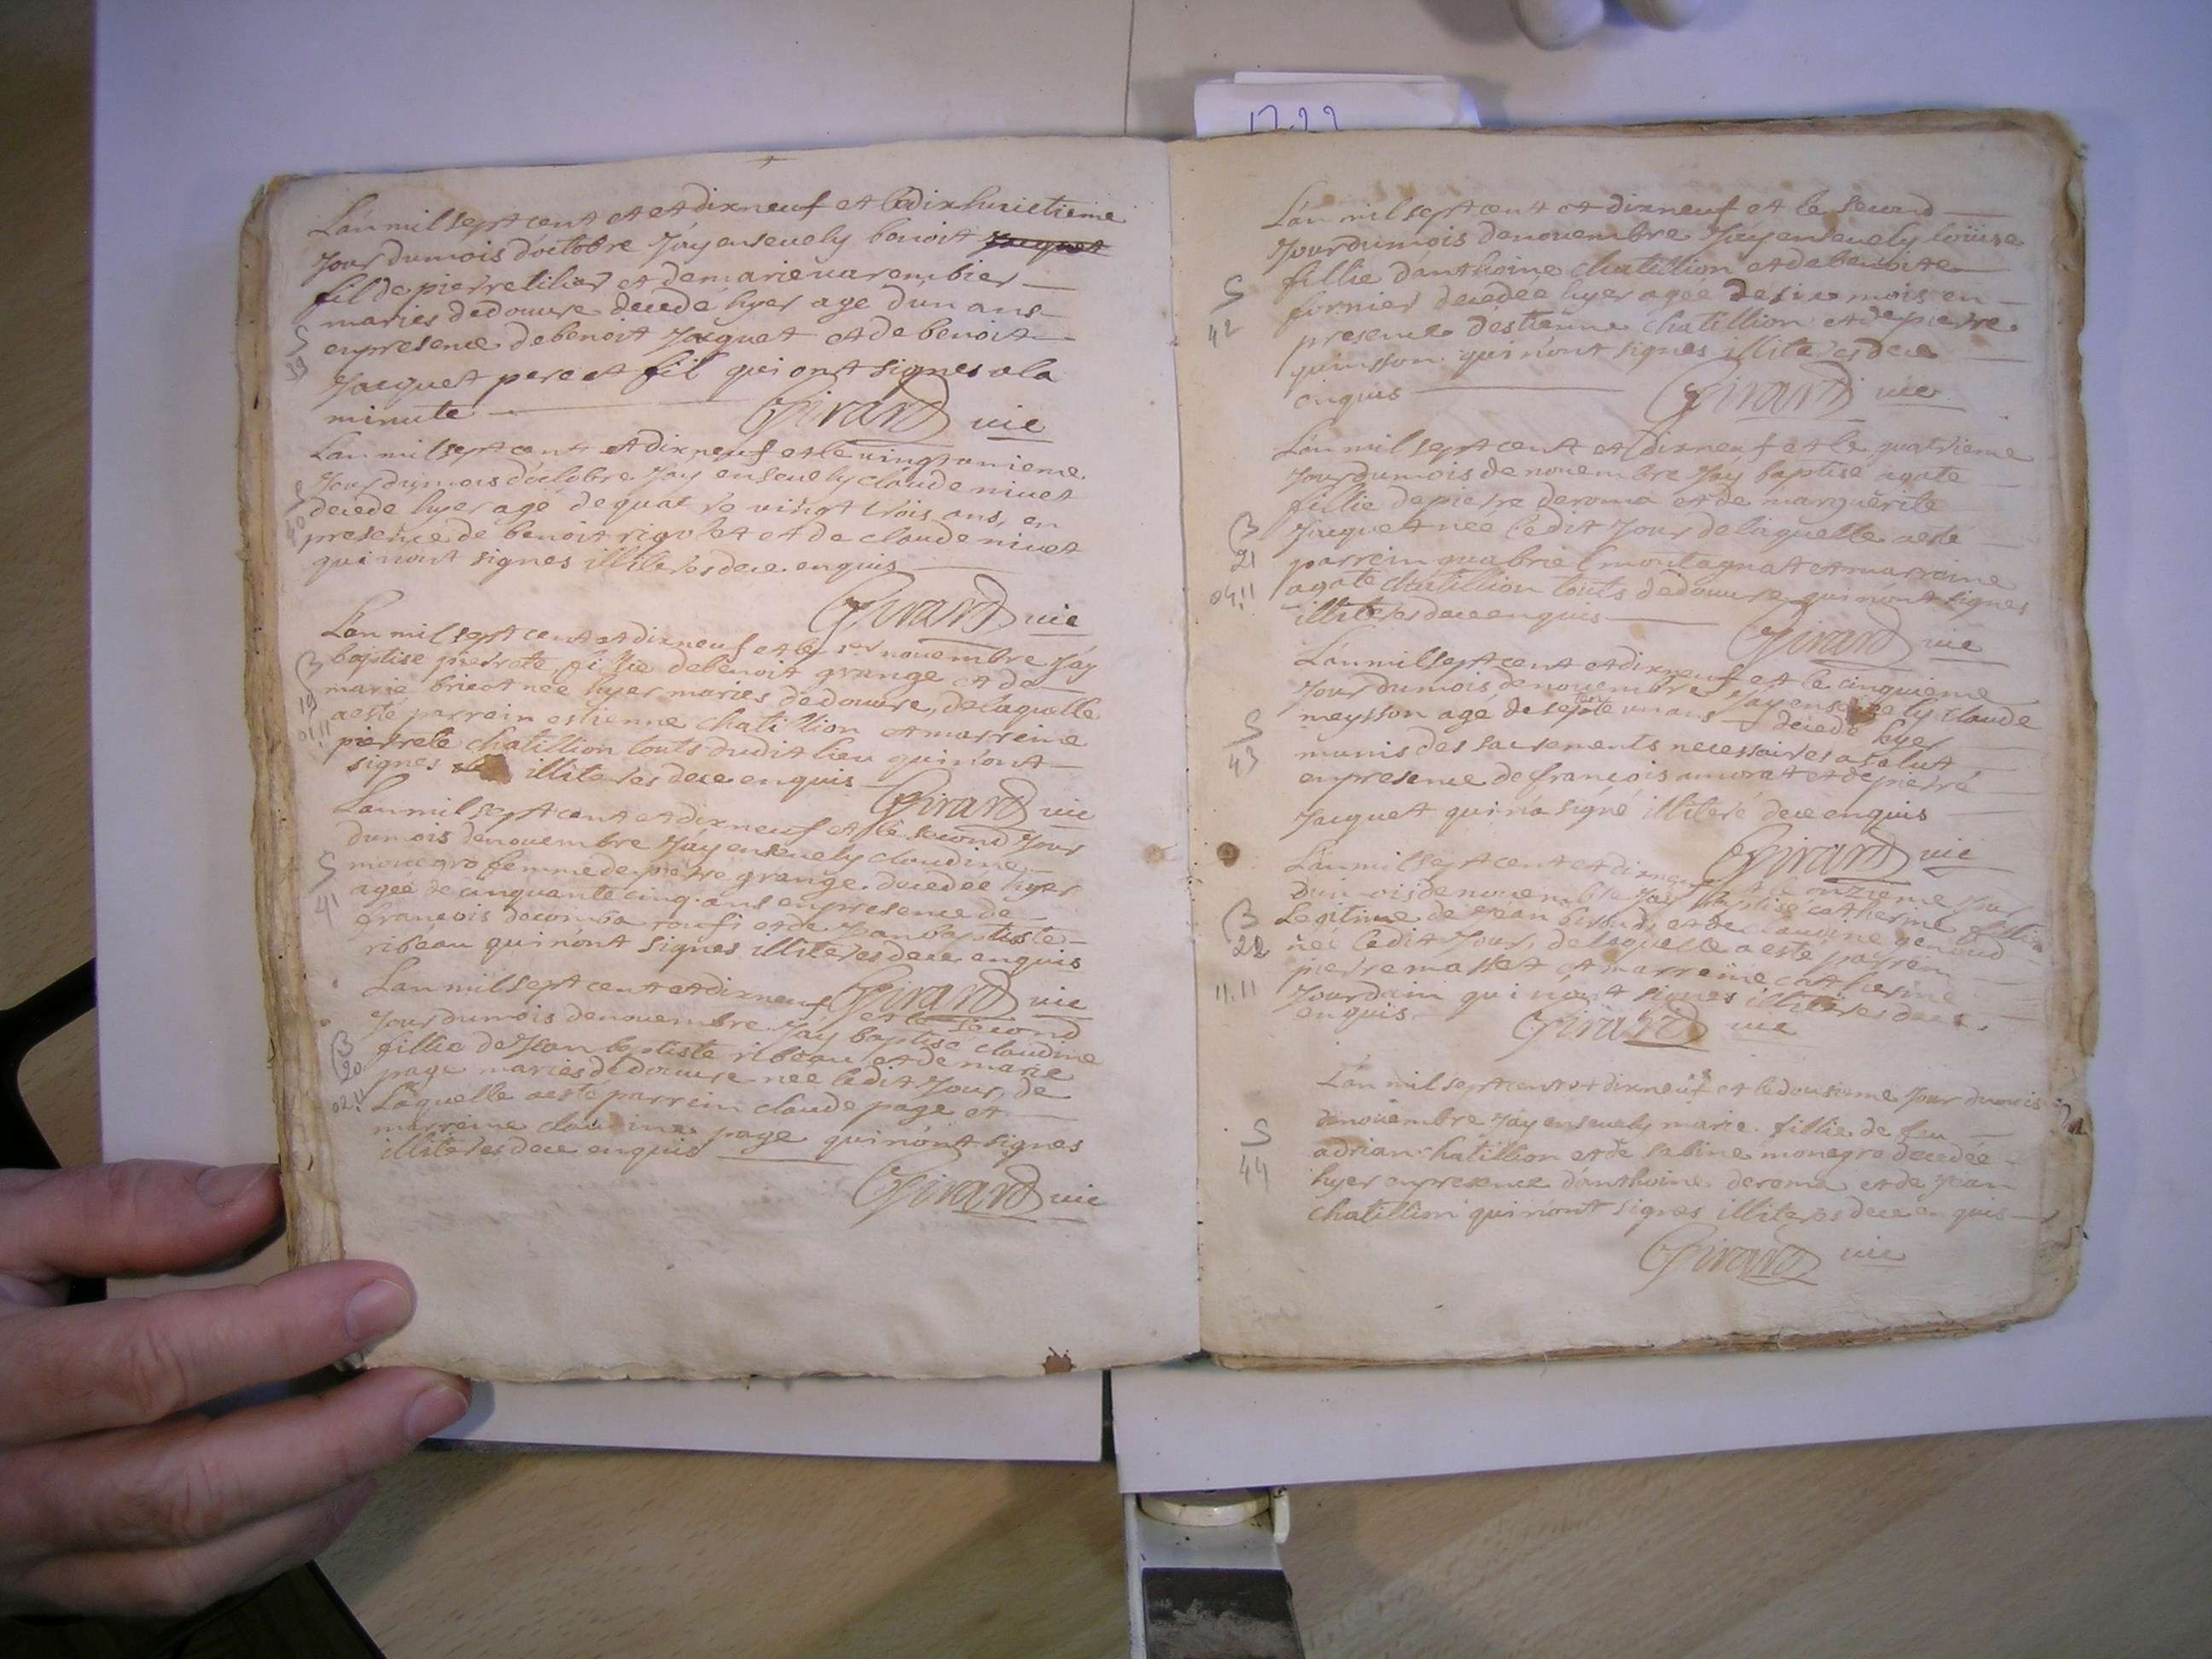 1722
L'an mil sept cent et et dixneuf et le dixhuictieme
Jour du mois d'octobre J'ay ensevely benoit Jacquet
fil de pierre tilier et de marie varembier
maries de douvre decedé hyer agé d'un ans
S
39
en presence de benoit Jacquet et de benoit
Jacquet pere et fil qui ont signes a la
minute Girard vic
L'an mil sept cent et dixneuf et le vingt unieme
Jour du mois d'octobre J'ay ensevely claude nivet
S
40
decede hyer agé de quatre vingt trois ans, en
presence de benoit rigolet et de claude nivet
qui n'ont signes illiteres de ce enquis
Girard vic
L'an mil sept cent et dixneuf et le 1er novembre J'ay
B
19
01.11
baptise pierrete fillie de benoit grange et de
marie bricot neé hyer maries de douvre, de laquelle
a esté parrein estienne chatillion et marreine
pierrete chatillion touts dudit lieu qui n'ont
signes illiteres de ce enquis
Girard vic
L'an mil sept cent et dixneuf et le second Jour
du mois de novembre J'ay ensevely claudine
S
41
monegro femme de pierre grange decedée hyer
ageé de cinquante cinq ans en presence de
francois decomba roufi et de Jean baptiste
ribeau qui n'ont signes illiteres de ce enquis
Girard vic
L'an mil sept cent et dixneuf et le second
Jour du mois de novembre J'ay baptise claudine
B
20
02.11
fillie de Jean baptiste ribeau et de marie
page maries de douvre neé ledit Jour, de
Laquelle a esté parrein claude page et
marreine claudine page qui n'ont signes
illiteres de ce enquis
Girard vic
L'an mil sept cent et dixneuf et le second
Jour du mois de novembre J'ay ensevely loüise
fillie d'anthoine chatillion et de benoite
S
42
fornier decedée hyer ageé de six mois en
presence d'estienne chatillion et de pierre
quinsson qui n'ont signes illiteres de ce
enquis Girard vic
L'an mil sept cent et dixneuf et le quatrieme
Jour du mois de novembre J'ay baptisé agate
fillie de pierre deroma et de marguerite
B
21
04.11
Jacquet neé ledit Jour de laquelle a esté
parrein gabriel montagnat et marreine
agate chatillion touts de douvre qui n'ont signes
illiteres de ce enquis
Girard vic
L'an mil sept cent et dixneuf et le cinquieme
Jour du mois de novembre J'ay ensevely claude
meysson agé de septante un ans decedé hyer
S
43
munis des sacrements necessaires a salut
en presence de francois amorat et de pierre
Jacquet qui n'a signé illiteré de ce enquis
Girard vic
L'an mil sept cent et dixneuf et le onzieme Jour
du mois de novembre J'ay baptisé catherine fillie
B
22
11.11
Legitime de Jean et de claudine genoud
neé ledit Jour, de laquelle a esté parrein
pierre masset et marreine catherine
Jourdain qui n'ont signes illiteres de ce
enquis Girard vic
L'an mil sept cent et dixneuf et le dousieme Jour du mois
de novembre J'ay ensevely marie fillie de feu
S
44
adrian chatillion et de sabine monegro decedée
hyer en presence d'anthoine deroma et de Jean
chatillion qui n'ont signes illiteres de ce enquis
Girard vic